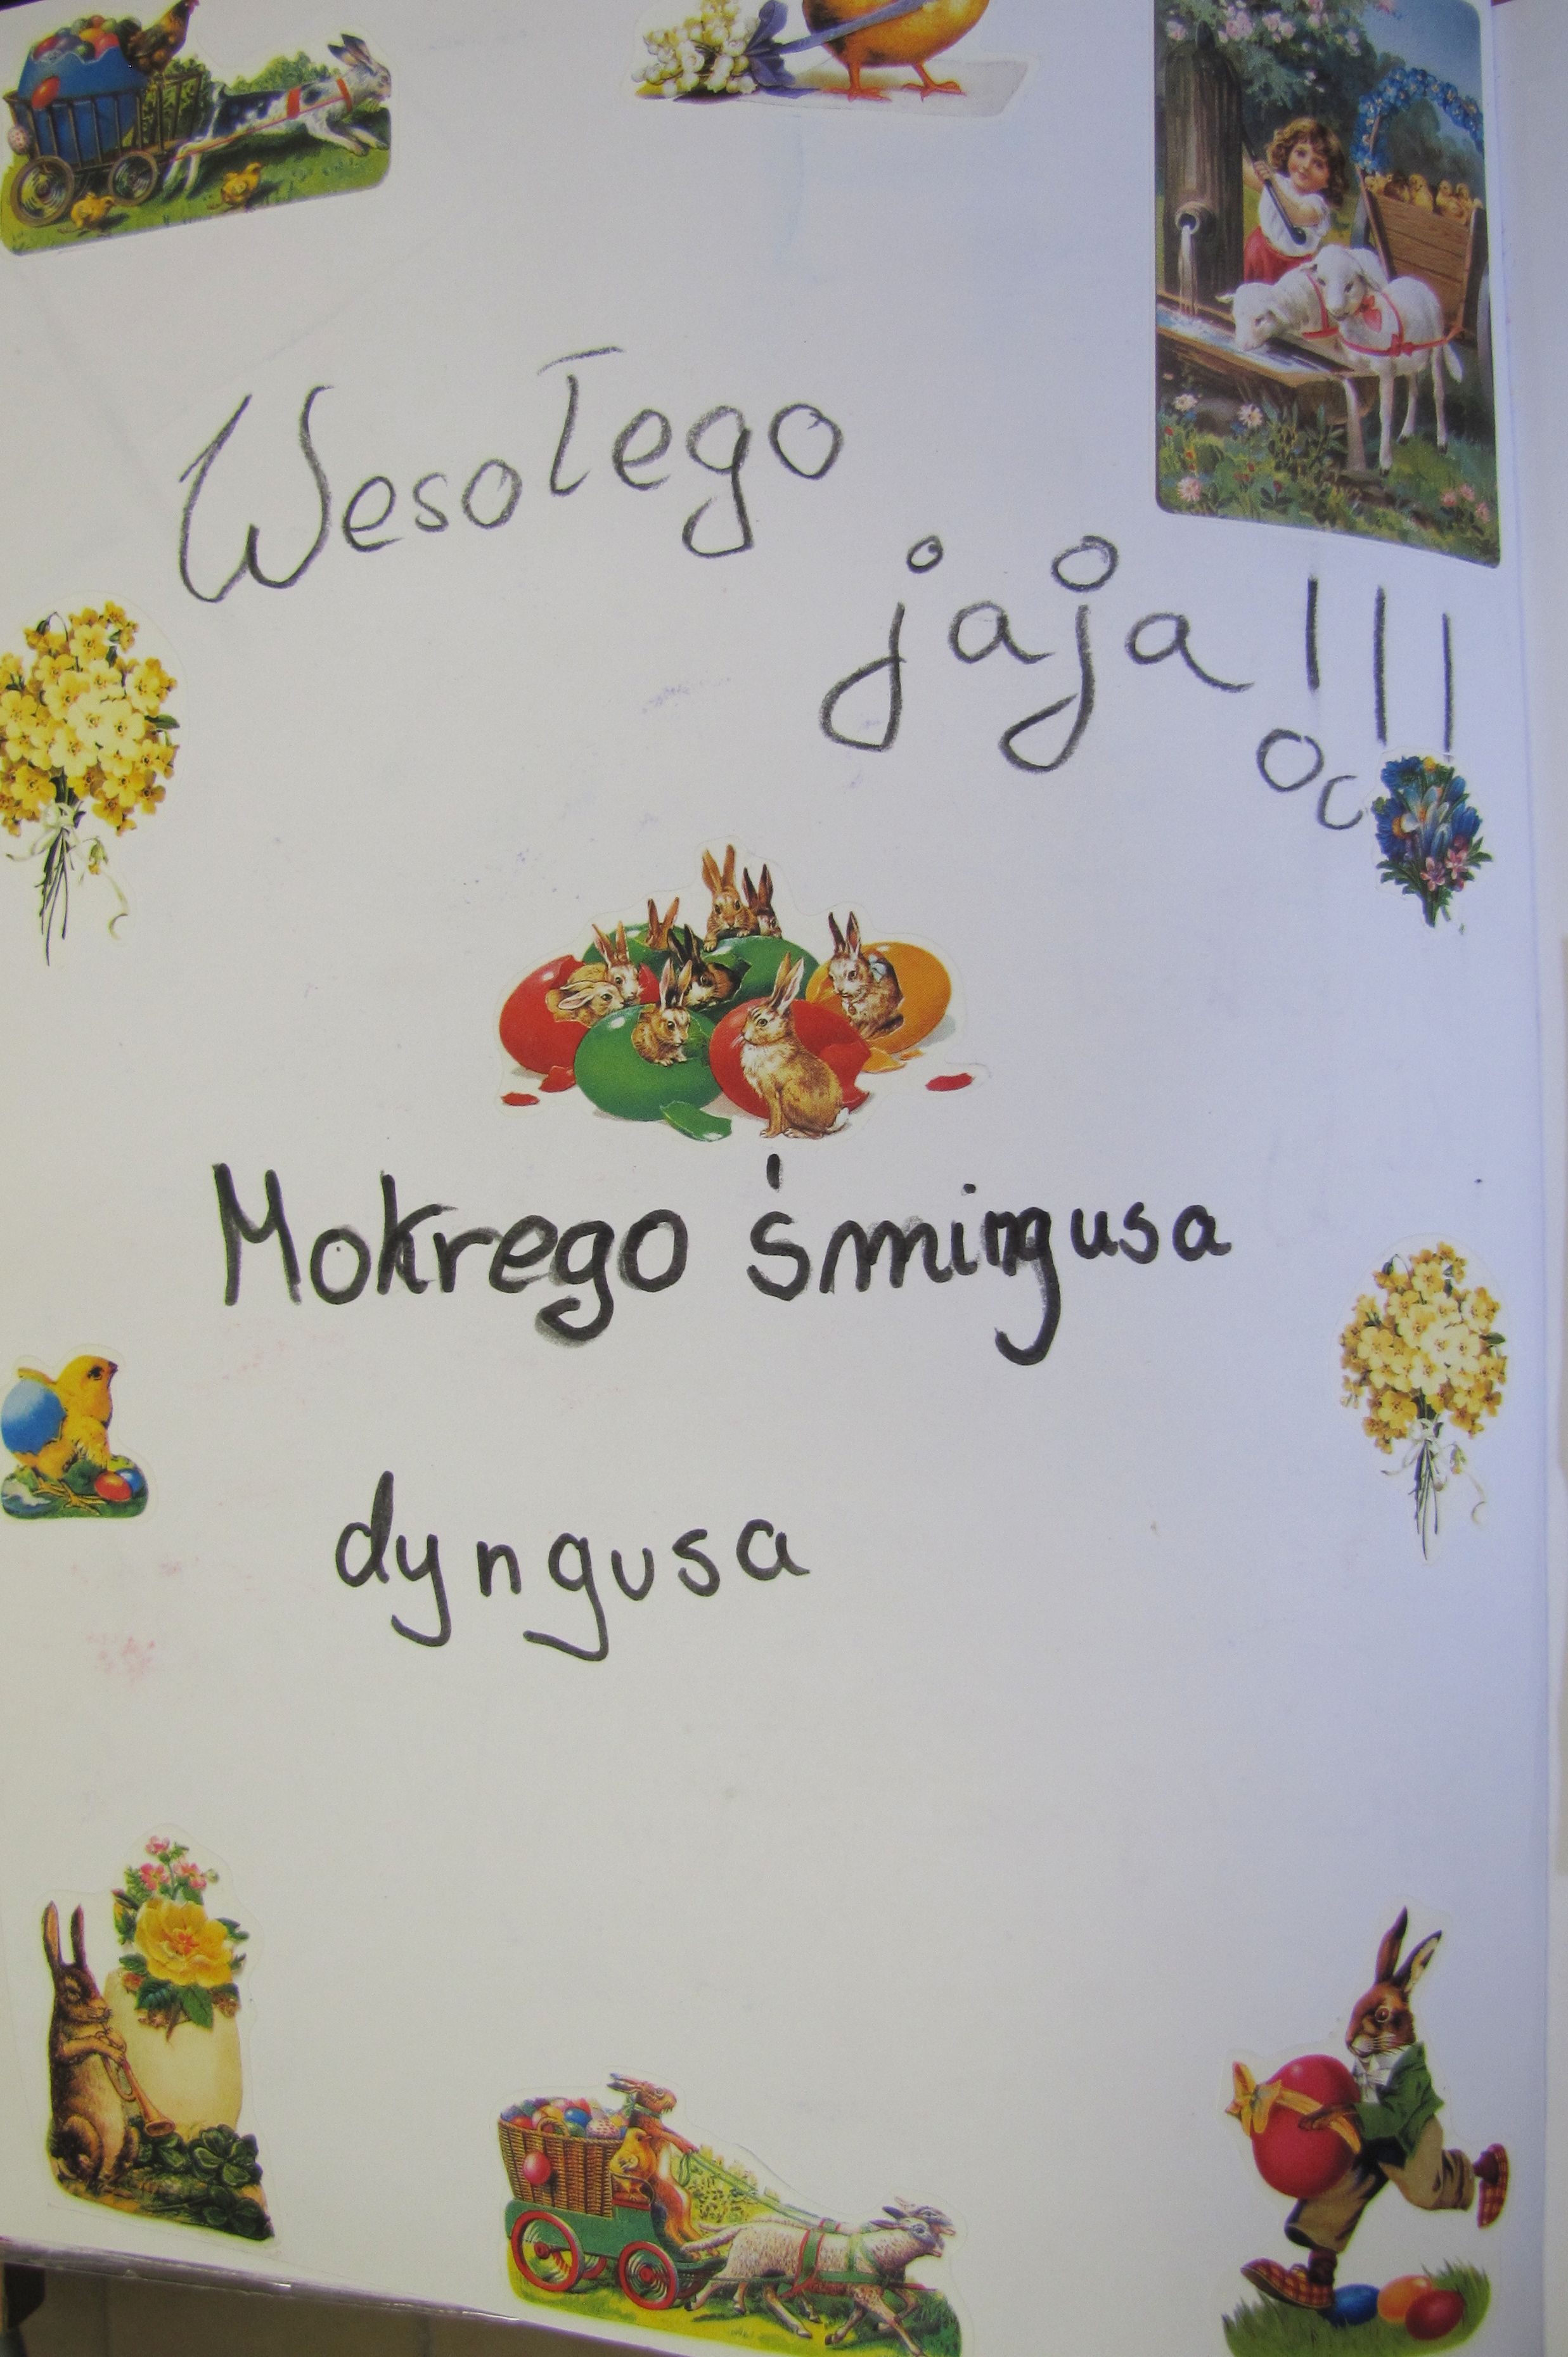 Wesołego
jaja!!!
Mokrego śmingusa
dyngusa